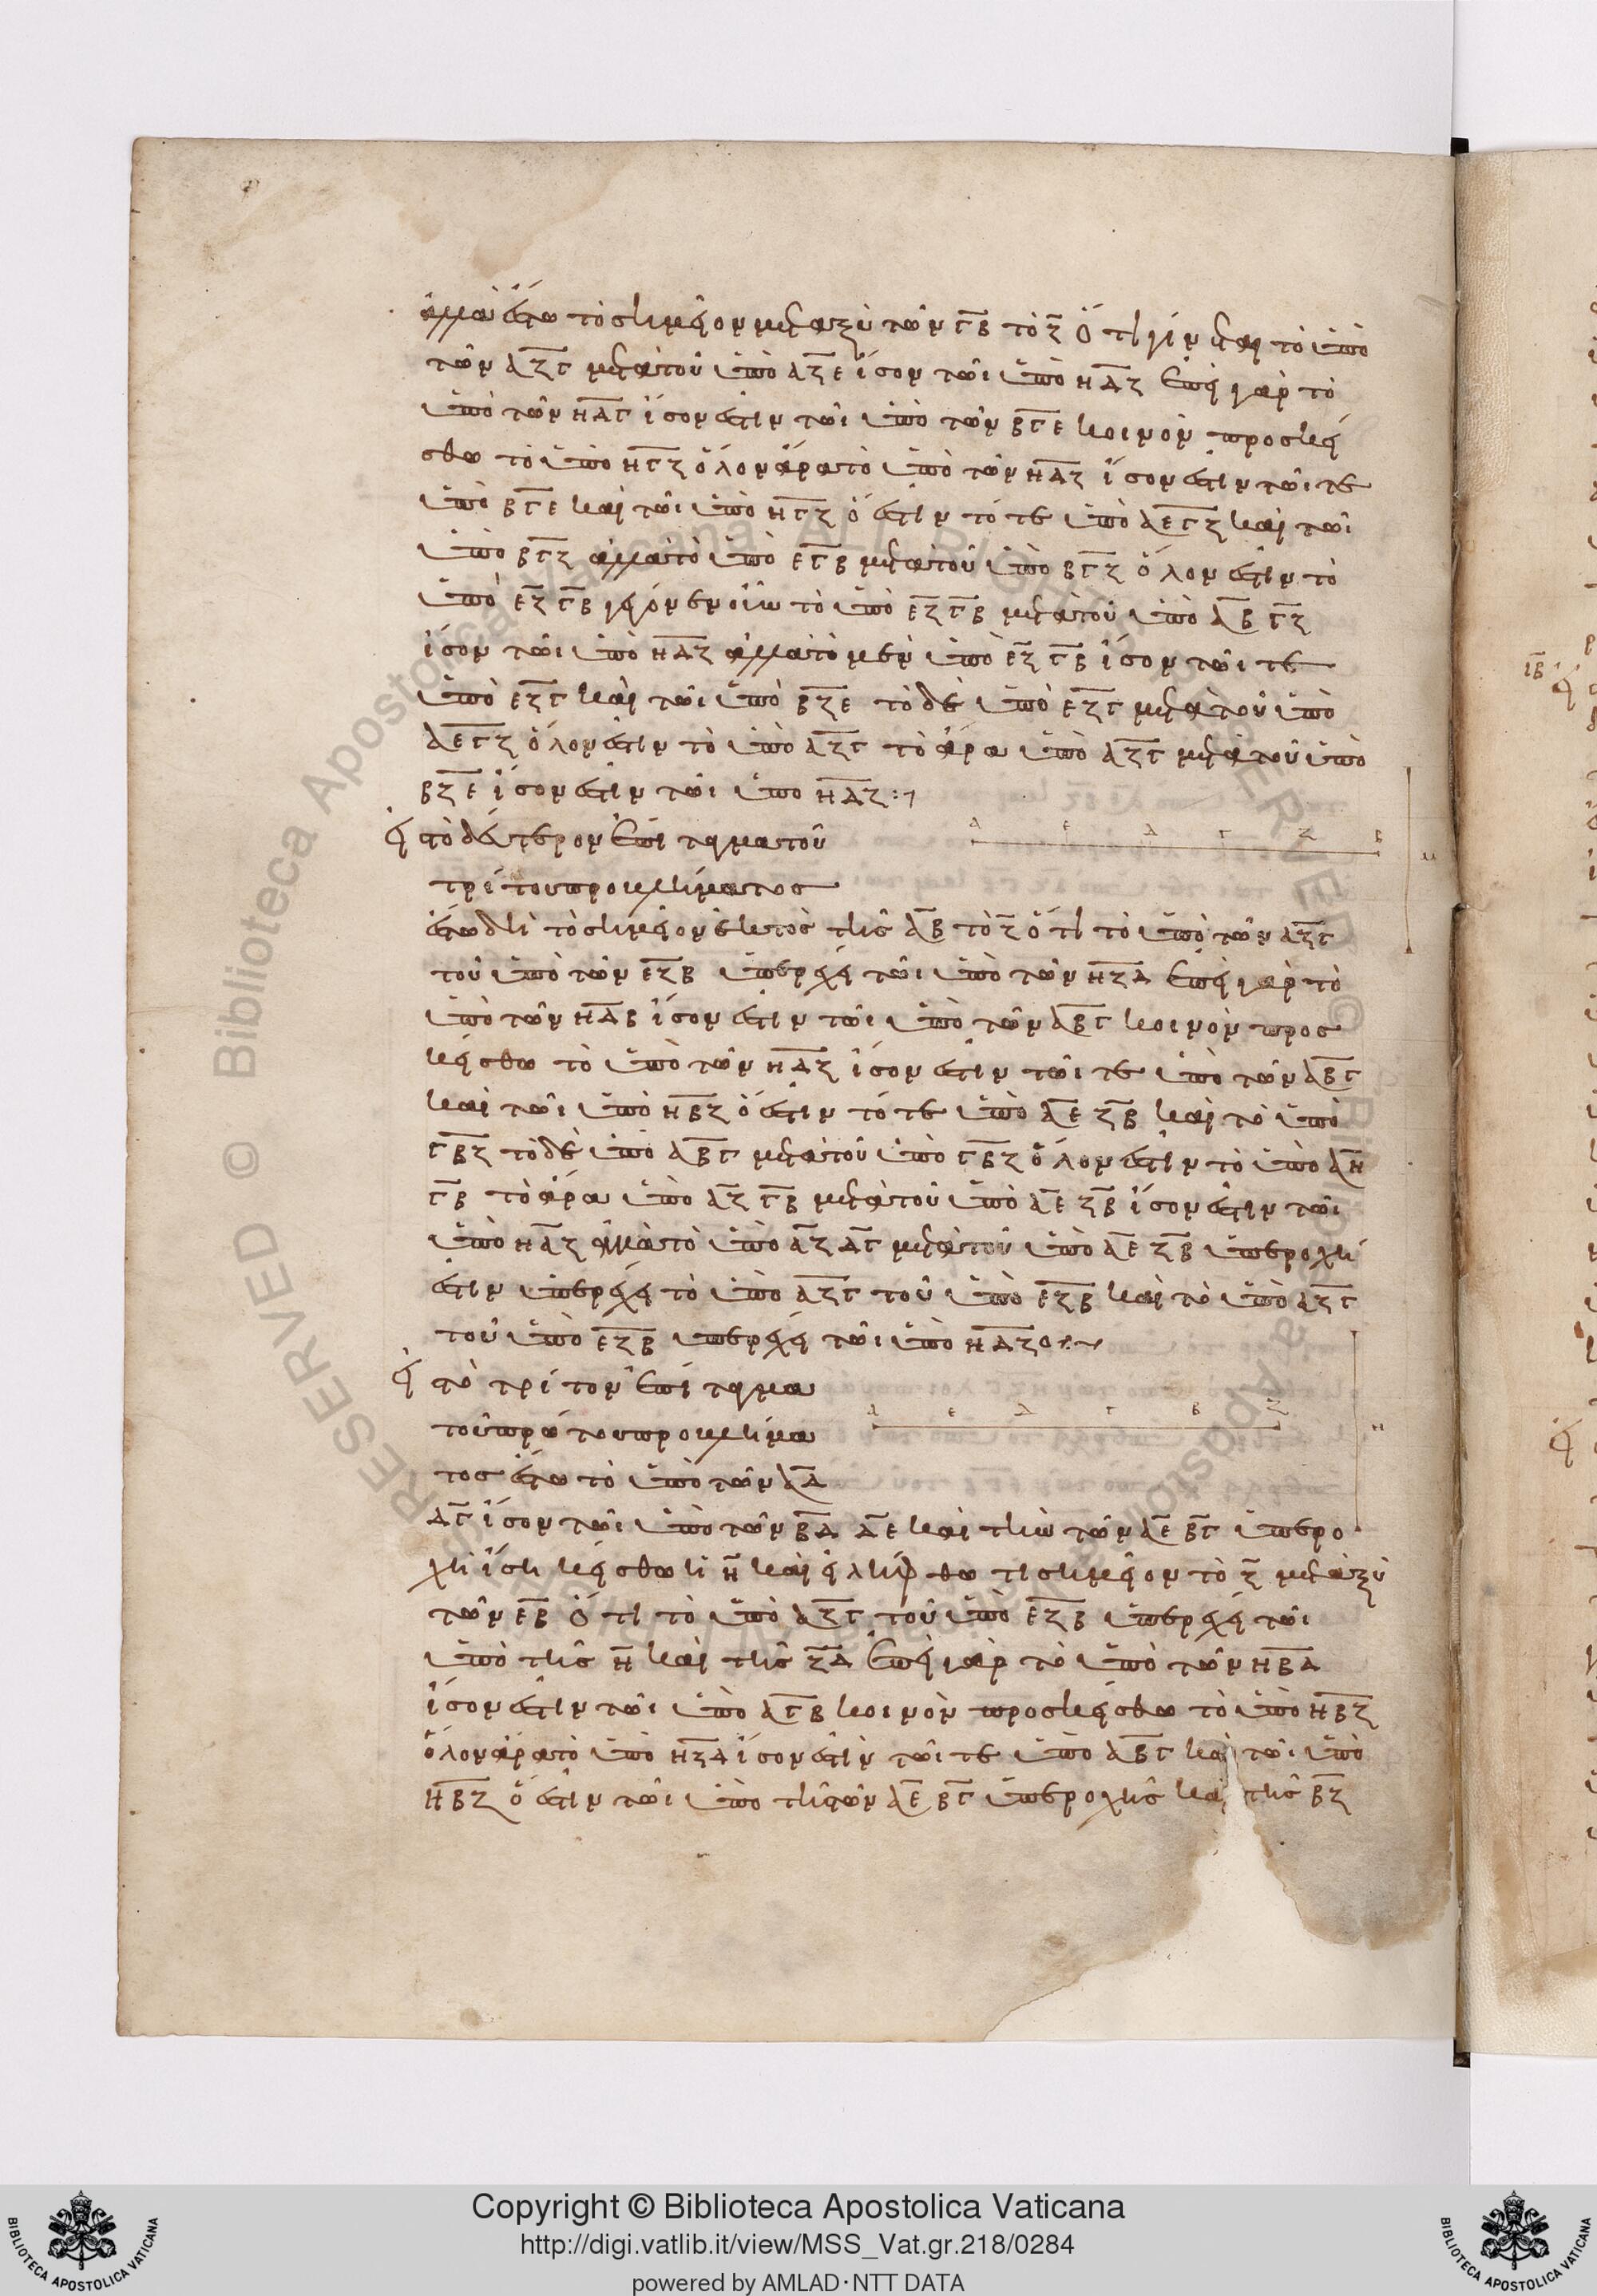 ἀλλὰ ἔστω τὸ σημεῖον μεταξὺ τῶν Γ̅Β̅ τὸ Ζ̅ ὅτι γίνεται τὸ ὑπὸ
τῶν ΑΖΓ μετὰ τοῦ ὑπὸ ΑΖΕ ἴσον τῶι ὑπὸ ΗΔΖ ἐπεὶ γὰρ τὸ
ὑπὸ τῶν ΗΔΓ ἴσον ἐστὶν τῶι ὑπὸ τῶν ΒΓΕ κοινὸν προσκεί
σθω τὸ ὑπὸ ΗΓΖ ὅλον ἄρα τὸ ὑπὸ τῶν ΗΔΖ ἴσον ἐστὶν τῶι τε
ὑπὸ ΒΓΕ καὶ τῶι ὑπὸ ΗΓΖ ὅ ἐστιν τό τε ὑπὸ ΑΕΓΖ καὶ τῶι
ὑπὸ ΒΓΖ ἀλλὰ τὸ ὑπὸ ΕΓΒ μετὰ τοῦ ὑπὸ ΒΓΖ ὅλον ἐστὶν τὸ
ὑπὸ ΕΖ ΓΒ γέγονεν οὖν τὸ ὑπὸ ΕΖ ΓΒ μετὰ τοῦ ὑπὸ ΑΒ ΓΖ
ἴσον τῶι ὑπὸ ΗΔΖ ἀλλὰ τὸ μὲν ὑπὸ ΕΖ ΓΒ ἴσον τῶι τε
ὑπὸ ΕΖΓ καὶ τῶι ὑπὸ ΒΖΕ τὸ δὲ ὑπὸ ΕΖΓ μετὰ τοῦ ὑπὸ
ΑΕΓΖ ὅλον ἐστὶν τὸ ὑπὸ ΑΖΓ τὸ ἄρα ὑπὸ ΑΖΓ μετὰ τοῦ ὑπὸ
ΒΖΕ ἴσον ἐστὶν τῶι ὑπὸ ΗΔΖ :
Α Ε Δ Γ Ζ Β
Η
τὸ δεύτερον ἐπίταγμα τοῦ
τρίτου προβλήματος
ἔστω δὴ τὸ σημεῖον ἐκτὸς τῆς ΑΒ τὸ Ζ ὅτι τὸ ὑπὸ τῶν ΑΖΓ
τοῦ ὑπὸ τῶν ΕΖΒ ὑπερέχει τῶι ὑπὸ τῶν ΗΖΔ ἐπεὶ γὰρ τὸ
ὑπὸ τῶν ΗΔΒ ἴσον ἐστὶν τῶι ὑπὸ τῶν ΑΒΓ κοινὸν προσ
κείσθω τὸ ὑπὸ τῶν ΗΔΖ ἴσον ἐστὶν τῶι τε ὑπὸ τῶν ΑΒΓ
καὶ τῶι ὑπὸ ΗΒΖ ὅ ἐστιν τό τε ὑπὸ ΑΕ ΖΒ καὶ τὸ ὑπὸ
ΓΒΖ τὸ δὲ ὑπὸ ΑΒΓ μετὰ τοῦ ὑπὸ ΓΒΖ ὅλον ἐστὶν τὸ ὑπὸ ΑΗ
ΓΒ τὸ ἄρα ὑπὸ ΑΖ ΓΒ μετὰ τοῦ ὑπὸ ΑΕ ΖΒ ἴσον ἐστὶν τῶι
ὑπὸ ΗΔΖ ἀλλὰ τὸ ὑπὸ ΑΖ ΔΓ μετὰ τοῦ ὑπὸ ΑΕ ΖΒ ὑπεροχή
ἐστιν ὑπερέχει τὸ ὑπὸ ΑΖΓ τοῦ ὑπὸ ΕΖΒ καὶ τὸ ὑπὸ ΑΖΓ
τοῦ ὑπὸ ΕΖΒ ὑπερέχει τῶι ὑπὸ ΗΔΖ
τὸ τρίτον ἐπίταγμα
Α Ε Δ Γ Β Ζ
Η
τοῦ πρώτου προβλήμα
τος ἔστω τὸ ὑπὸ τῶν ΑΔ
ΔΓ ἴσον τῶι ὑπὸ τῶν ΒΔ ΔΕ καὶ τὴν τῶν ΑΕ ΒΓ ὑπερο
χὴ ἴση κείσθω ἡ Η καὶ εἰλήφθω τι σημεῖον τὸ Ζ μεταξὺ
τῶν ΕΒ ὅτι τὸ ὑπὸ ΑΖΓ τοῦ ὑπὸ ΕΖΒ ὑπερέχει τῶι
ὑπὸ τῆς Η καὶ τῆς ΖΔ ἐπεὶ γὰρ τὸ ὑπὸ τῶν ΗΒΔ
ἴσον ἐστὶν τῶι ὑπὸ ΑΓΒ κοινὸν προσκείσθω τὸ ὑπὸ ΗΒΖ
ὅλον ἄρα τὸ ὑπὸ ΗΖΔ ἴσον ἐστὶν τῶι τε ὑπὸ ΑΒΓ καὶ τῶι ὑπὸ
ΗΒΖ ὅ ἐστιν τῶι ὑπὸ τῆς τῶν ΑΕ ΒΓ ὑπεροχῆς καὶ τῆς ΒΖ
Copyright © Biblioteca Apostolica Vaticana
http://digi.vatlib.it/view/MSS_Vat.gr.218/0284
powered by AMLAD·NTT DATA